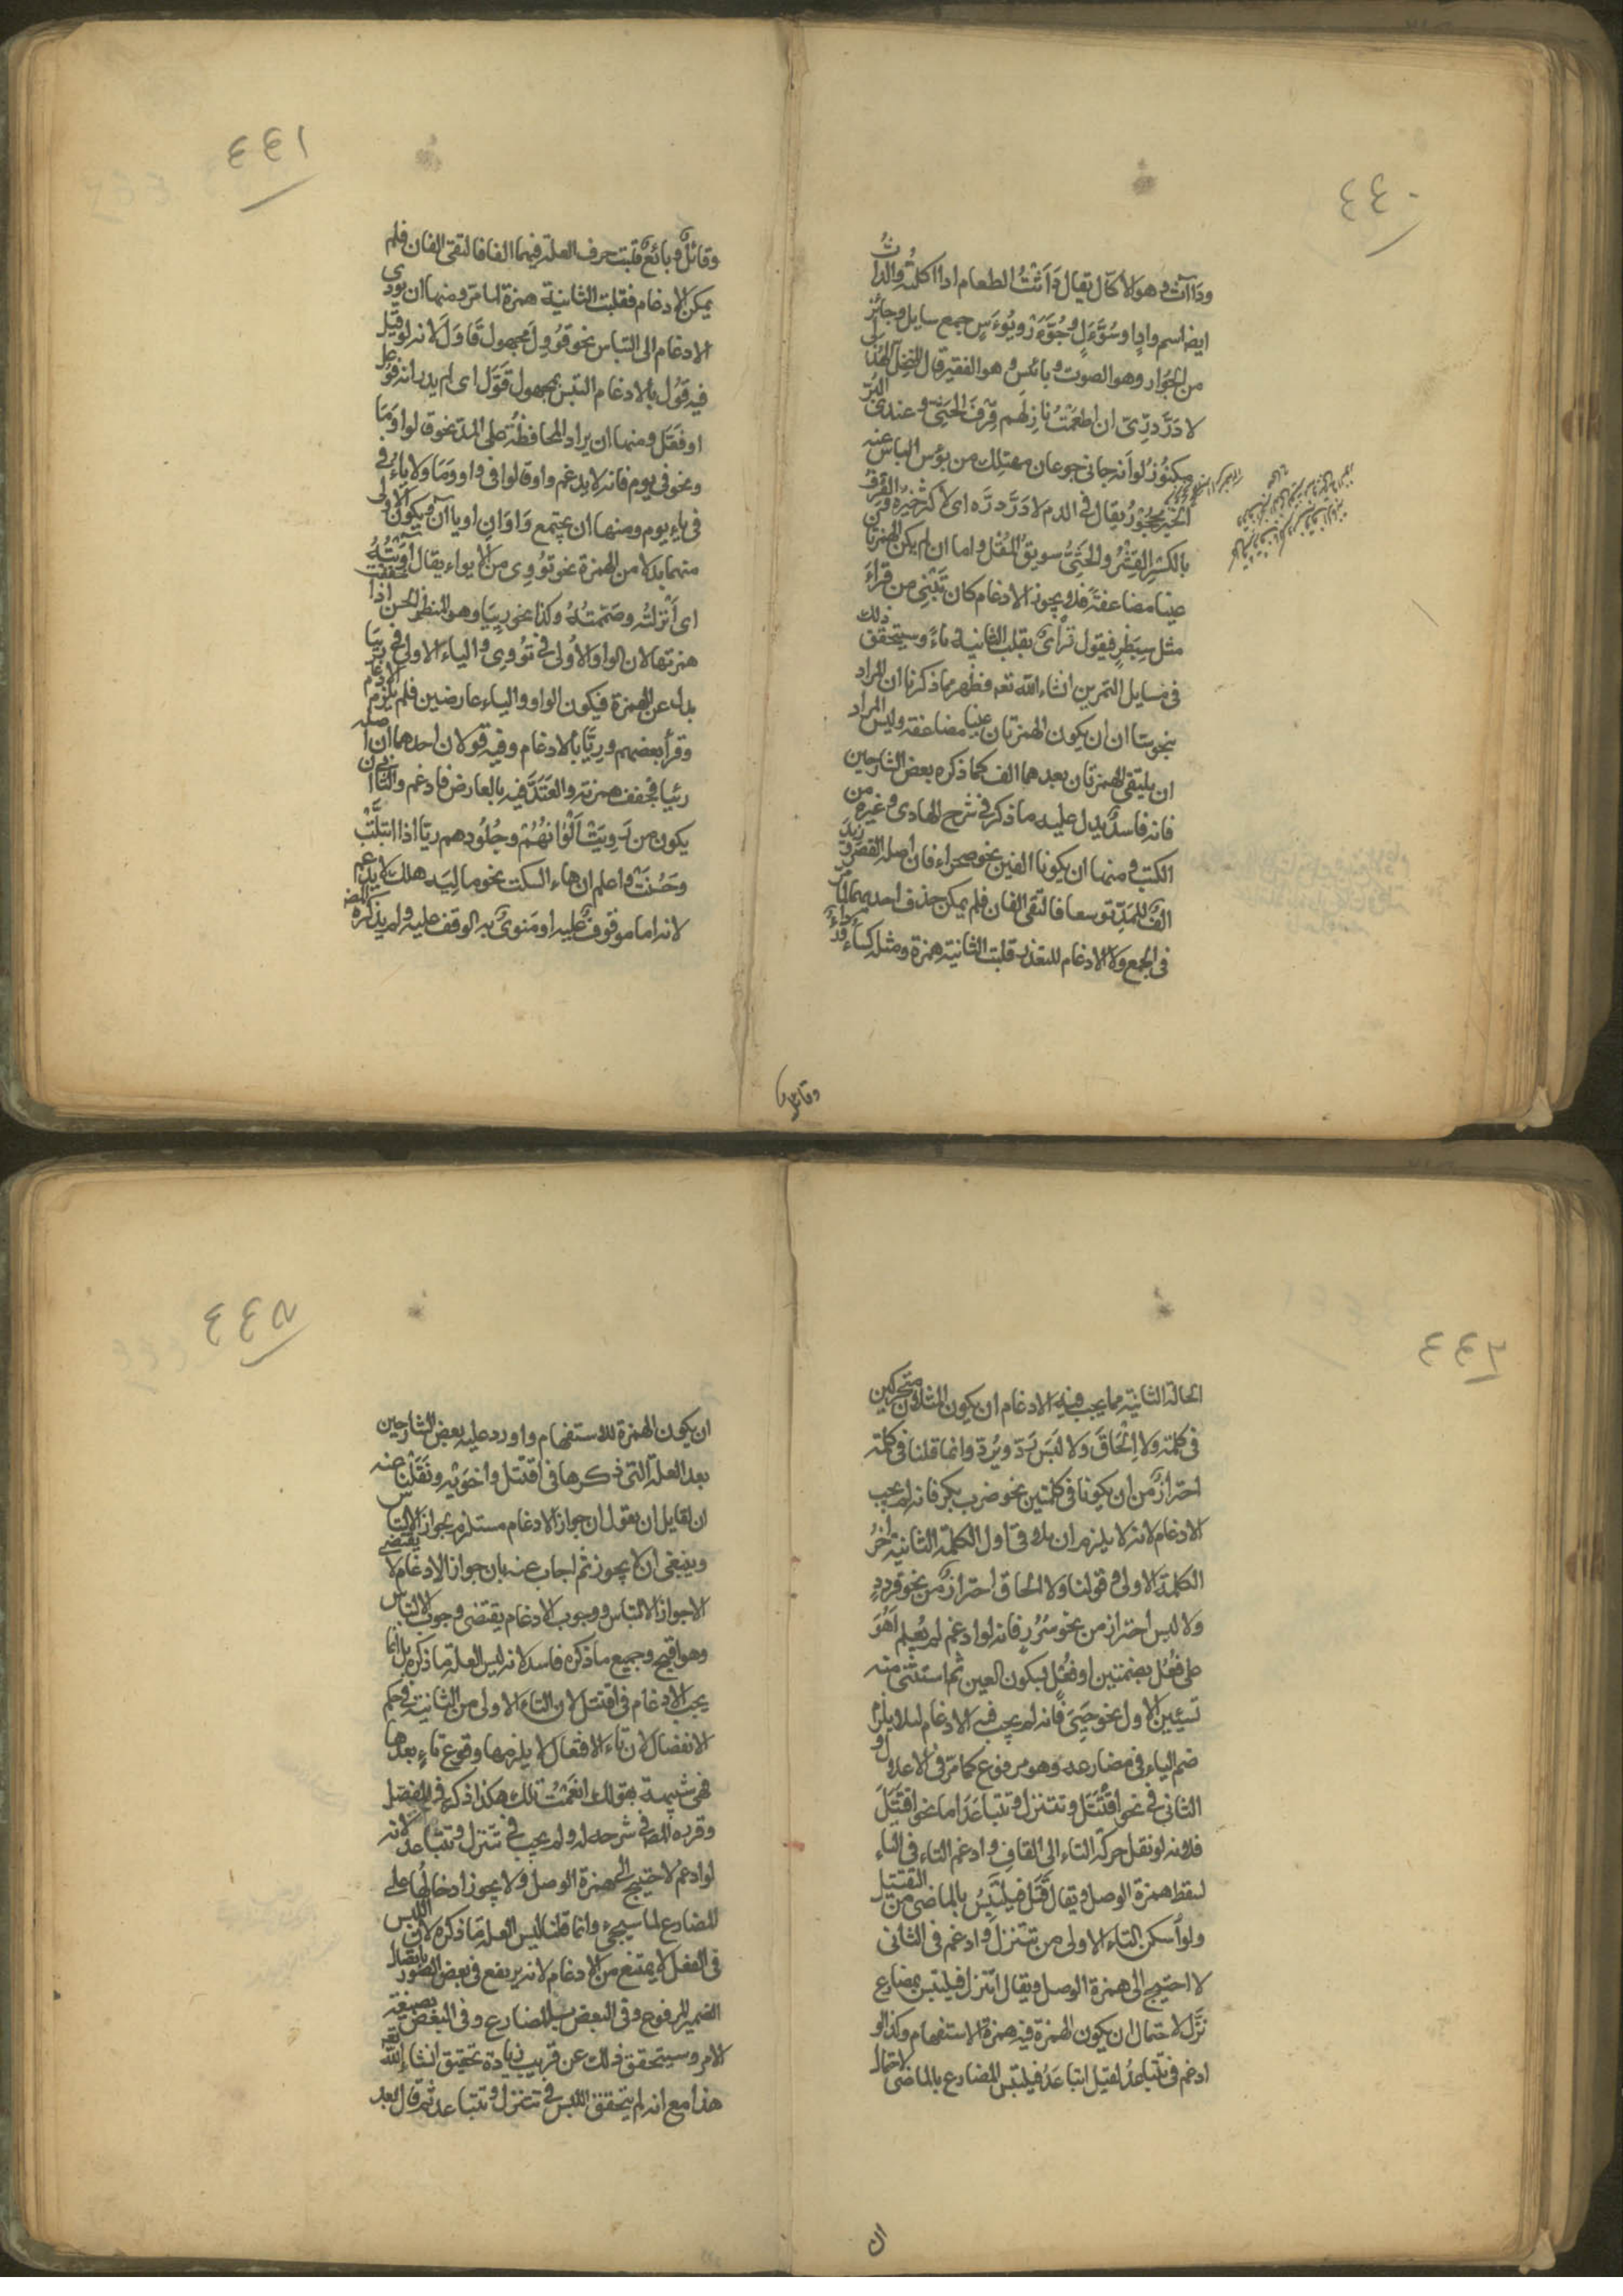 ٤٤٠
ودَاآث وهو لاكآل يقال دَأَثْتُ الطعام اذا اكلته والدأث
ايضا اسم وادٍ وسُوَّءَلٍ وجُوَّءَرٌ وبُوءَسٍ جمع سايل وجائر
من الجؤار وهو الصوت وبائس وهو الفقير قال المتنخل الهذلى
لا دَرَّ درِّىَ ان اطعَمْتُ نازلهم قِرْفَ الحَتِىّ وعندى البُرّ
مكنُوزُ لو انه جانى جوعان مهتلك من بؤس الناس عنه
الخير محجُوزُ يقال فى الذم لا دَرَّ درَّه اى لا كثر خيره والقرف
بالكسر القِشْرُ والحَتِىُّ سويق المُقْل واما ان لم يكن الهمزتان
عينا مضاعفةً فلا يجوز الادغام كان تَبْنِى من قراءَ
مثل سِبَطْرٍ فيقول قرأىٌ بقلب الثانية ياءً وسيتحقق ذلك
فى مسايل التمرين انشاء الله تعه فظهر مما ذكرنا ان المراد
بنحو سأال ان يكون الهمزتان عينا مضاعفة وليس المراد
ان يلتقى الهمزتان بعدهما الف كما ذكره بعض الشارحين
فانه فاسد يدل عليه ما ذكر فى شرح الهادى وغيره من
الكتب ومنها ان يكونا الفين نحو صحراء فان اصله القصر وزيد
الفٌ للمَدِّ توسعا فالتقى الفان فلم يمكن حذف احدهما لما مرّ
فى الجمع ولا الادغام للتعذر قلبت الثانية همزة ومثله كساء ورداءٌ
وقائل
٤٤١
وقائلٌ وبائعٌ قلبت حرف العلة فيهما الفا فالتقى الفان فلم
يمكن الادغام فقلبت الثانية همزة لما مر ومنها ان يودى
الادغام الى التباس نحو قُووِلَ مجهول قَاوَلَ لانه لو قيل
فيه قُوّل بالادغام التبس بمجهول قَوَّلَ اى لم يدر انه فُوعل
او فَعَّل ومنها ان يراد المحافظةُ على المدّ نحو قالوا ومَا
ونحو فى يوم فانه لا يدغم واو قالوا فى واو وَمَا ولا ياءُ فى
فى ياءِ يوم ومنها ان يجتمع وَاوَانِ او ياان ويكون الاولى
منهما بدلا من الهمزة نحو تُووِى من الايواء يقال اَوَيْتُهُ
اى اَنْزلتُه وضَمَمتُهُ وكذا نحو رِييَا وهو المنظر الحسن اذا خففت
همزتها لان الواو الاُولى فى تُووِى والياء الاولى فى رييَا
بدل عن الهمزة فيكون الواو والياء عارضين فلم يلزم الادغام
وقرأ بعضهم ورِيًّا بالادغام وفيه قولان احدهما ان اصله
رِئيا فخفف همزته واُعْتَدَّ فيه بالعارض فادغم والثانى ان
يكون من رَوِيَتْ اَلْوَانُهُمْ وجُلُودهم رِيًّا اذا ابتلَّتْ
وحَسُنَتْ واعلم ان هاء السكت نحو ماليَه هلك لا يدغم
لانه اما موقوفٌ عليه او مَنوىٌّ به الوقف عليه ولم يذكره المصه
٤٤٢
الحالة الثانية مما يجب فيه الادغام ان يكون المثلان متحركين
فى كلمة ولا اِلْحَاقَ ولا لبَس نحو رَدَّ ويَرُدّ وانما قلنا فى كلمة
احترازٌ من ان يكونا فى كلمتين نحو ضرب بكر فانه لم يجب
الادغام لانه لا يلزم ان يلاقى اول الكلمة الثانية اٰخرُ
الكلمة الاولى وقولنا ولا الحاق احترازٌ من نحو قردد
ولا لبس احتراز من نحو سُرُرٍ فانه لو ادغم لم يُعْلم اَهُوَ
على فُعُل بضمتين او فُعْلٍ بسكون العين ثم استثنى منه
شيئين الاول نحو حَيِىَ فانه لم يجب فيه الادغام لئلا يلزم
ضم الياء فى مضارعه وهو مرفوع كما مرّ فى الاعلال و
الثانى فى نحو اقْتَتَلَ وتتنزل وتتباعَدَ اما نحو اقتَتَلَ
فلانه لو نقل حركة التاء الى القاف وادغم التاء فى التاء
لسقط همزة الوصل ويقال قَتَّل فيلتَبِسُ بالماضى من التقتيل
ولو اُسكن التاء الاولى من تتنزلَ وادغم فى الثانى
لا احتيج الى همزة الوصل ويقال اتّنزل فيلتبس بمضارع
نزَّل لاحتمال ان يكون الهمزة فيه همزة الاستفهام وكذا لو
ادغم فى تتباعدُ لقيل اتباعَدُ فيلتبس المضارع بالماضى لاحتمال
ان
٤٤٣
ان يكون الهمزة للاستفهام واورد عليه بعض الشارحين
بعد العلة التى ذكرها فى اقتتل واخويه ونَقَلْنا عنه
ان لقايل ان يقول ان جواز الادغام مستلزم بجواز الالتباس
وينبغى ان لا يجوز ثم اجاب عنه بان جواز الادغام لا يقتضى
الا جواز الالتباس ووجوب الادغام يقتضى وجوب الالتباس
وهو اقبح وجميع ما ذكره فاسد لانه ليس العلة ما ذكره بل انما
يجب الادغام فى اقتتل لان التاء الاولى من الثانية فى حكم
الانفصال لان تاء الافتعال لا يلزمها وقوع تاءٍ بعدها
فهى شبيهة بقولك انعَمْتُ تلك هكذا ذكره فى المفصل
وقرره المصه فى شرحه له ولم يجب فى تتنزل وتتباعد لانه
لو ادغم لاحتيج الى همزة الوصل ولا يجوز ادخالها على
المضارع لما سيجىء وانما قلنا ليس العلة ما ذكره لان اللبس
فى الفعل لا يمتنع من الادغام لانه يرتفع فى بعض الصور باتصال
الضمير المرفوع وفى البعض بالمضارع وفى البعض بصيغة
الامر وسيتحقق ذلك عن قريب زيادة تحقيق انشاء الله تعه
هذا مع انه لم يتحقق اللبس فى تتنزل وتتباعد ثم قال بعد